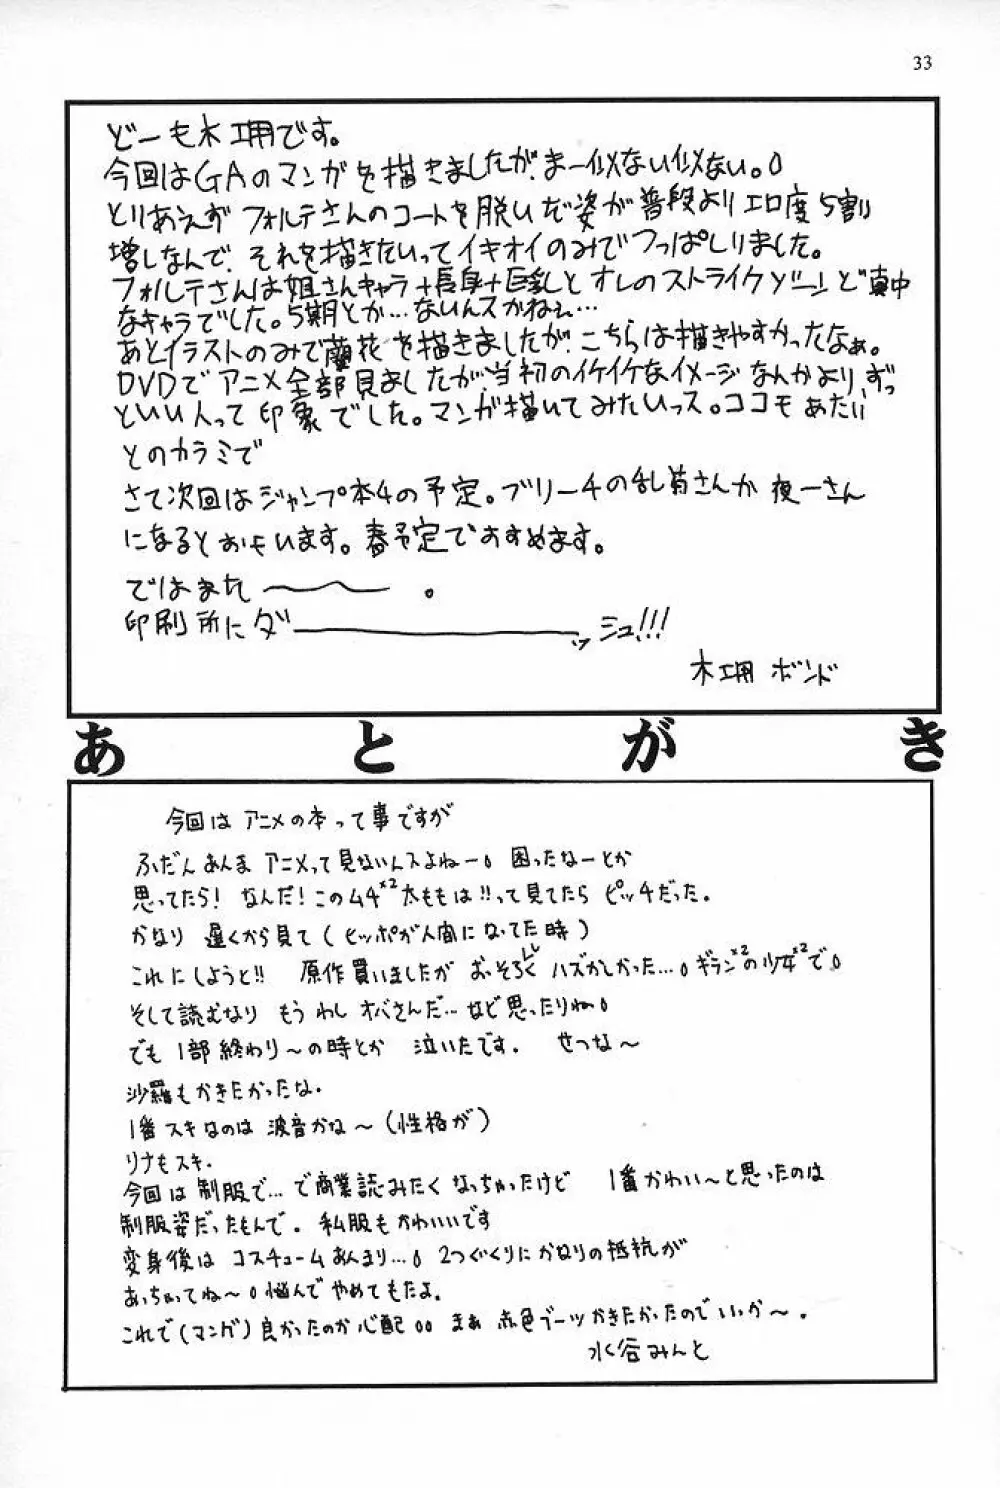 33
どーも木工用です。
今回はGAのマンガを描きましたが、まー似ない似ない。
とりあえず フォルテさんのコートを脱いだ姿が普段よりエロ度5割
増しなんで、それを描きたいってイキオイのみでつっぱしりました。
フォルテさんは姐さんキャラ+長身+巨乳と オレのストライクゾーンど真中
なキャラでした。5期とか…ないんスかねぇ…
あとイラストのみで蘭花を描きましたが、こちらは描きやすかったなぁ。
DVDでアニメ全部見ましたが、当初のイケイケなイメージなんかより、ずっ
といい人って印象でした。マンガ描いてみたいっス。ココモ あたり
とのカラミで
さて次回はジャンプ本4の予定。ブリーチの乱菊さんか 夜一さん
になるとおもいます。春予定でおすすめます。
ではまた〜。
印刷所にダーッシュ!!!
木工用 ボンド
あとがき
今回は アニメの本って事ですが
ふだんあんま アニメって見ないんスよねー。困ったなーとか
思ってたら!なんだ!このムチ×2 太ももは!!って見てたら ピッチだった。
かなり 遅くから見て(ヒッポが人間になってた時)
これにしようと!! 原作買いましたが おっそろしく ハズかしかった…。ギラン×2の少女×2で。
そして読むなり もう わし オバさんだ…など思ったりね。
でも 1部終わり〜の時とか 泣いたです。 せつな〜
沙羅もかきたかったな.
1番スキなのは 波音かな〜(性格が)
リナもスキ.
今回は 制服で…で商業読みたく なっちゃったけど 1番かわい〜と思ったのは
制服姿だったもんで。私服も かわいいです
変身後は コスチュームあんまり…。2つぐくりに かなりの抵抗が
あっちゃってね〜。悩んで やめてもたよ.
これで(マンガ)良かったのか 心配。。まぁ 赤色ブーツかきたかったので いいか〜.
水谷みんと